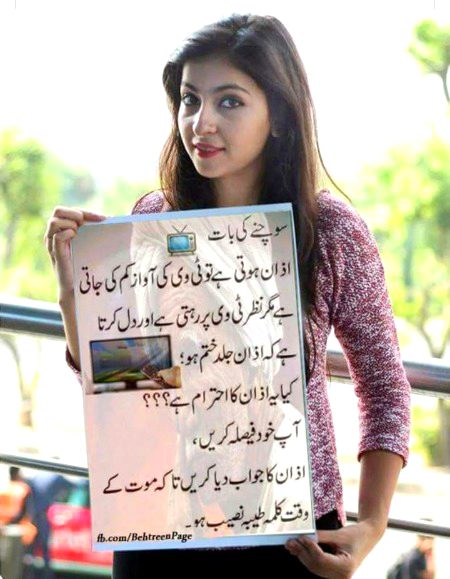 سوچنے کی بات
اذان ہوتی ہے تو ٹی وی کی آواز کم کی جاتی
ہے مگر نظر ٹی وی پر رہتی ہے اور دل کرتا
ہے کہ اذان جلد ختم ہو؛
کیا یہ اذان کا احترام ہے؟؟؟
آپ خود فیصلہ کریں،
اذان کا جواب دیا کریں تاکہ موت کے
وقت کلمہ طیبہ نصیب ہو۔
fb.com/BehtreenPage